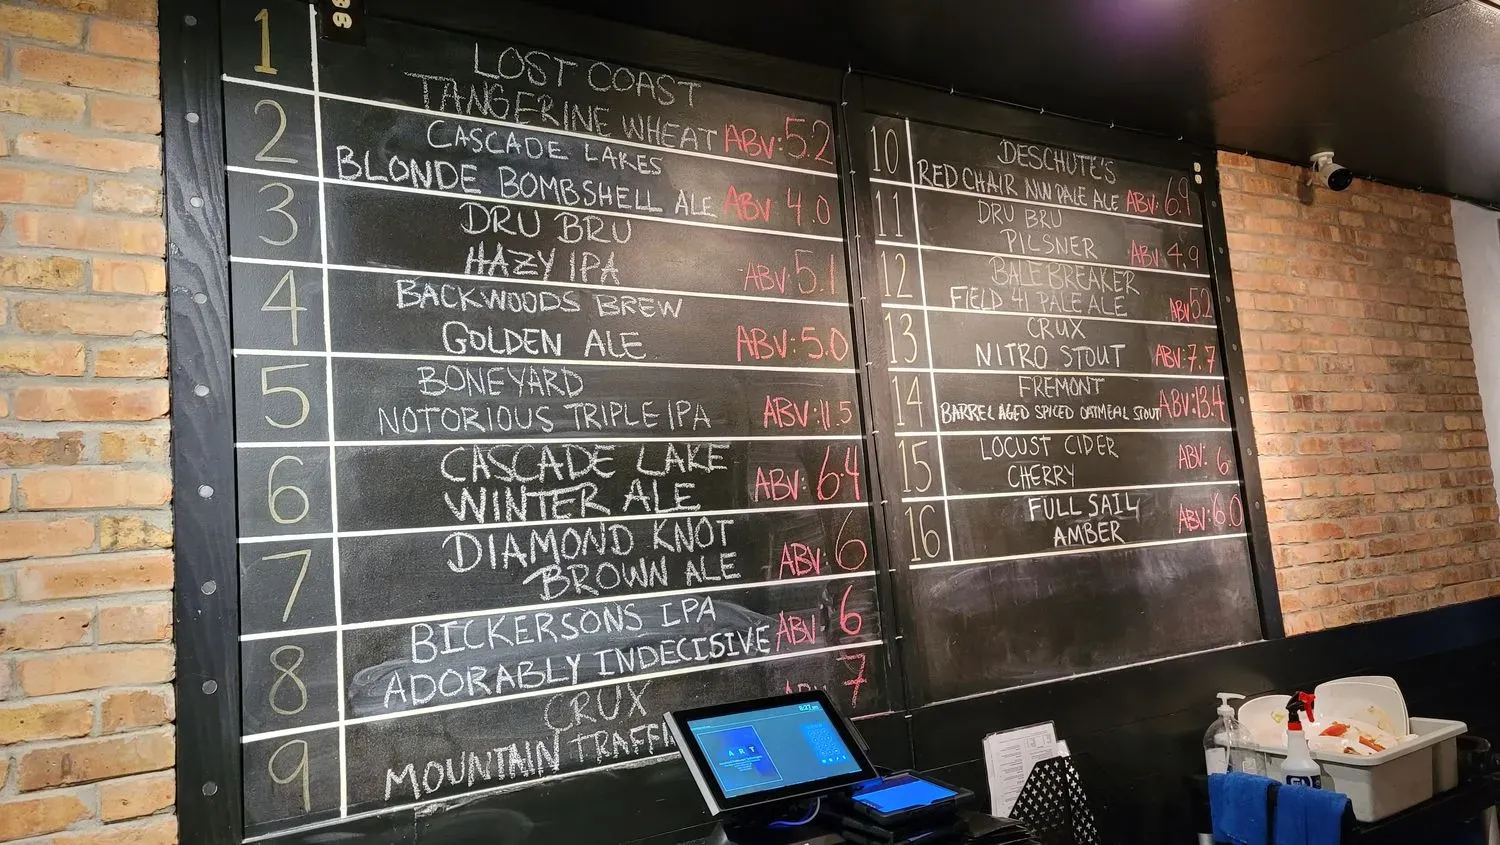 1
LOST COAST
TANGERINE WHEAT ABV: 5.2
2
CASCADE LAKES
BLONDE BOMBSHELL ALE ABV 4.0
3
DRU BRU
HAZY IPA ABV: 5.1
4
BACKWOODS BREW
GOLDEN ALE ABV: 5.0
5
BONEYARD
NOTORIOUS TRIPLE IPA ABV: 11.5
6
CASCADE LAKE
WINTER ALE ABV: 6.4
7
DIAMOND KNOT
BROWN ALE ABV: 6
8
BICKERSONS IPA
ADORABLY INDECISIVE ABV: 6
9
CRUX
MOUNTAIN TRAFFI
7
10
DESCHUTE'S
RED CHAIR NW PALE ALE ABV: 6.9
11
DRU BRU
PILSNER ABV: 4.9
12
BALE BREAKER
FIELD 41 PALE ALE ABV 5.2
13
CRUX
NITRO STOUT ABV: 7.7
14
FREMONT
BARREL AGED SPICED OATMEAL STOUT ABV: 13.4
15
LOCUST CIDER
CHERRY ABV: 6
16
FULL SAIL
AMBER ABV: 6.0
8:27
ART